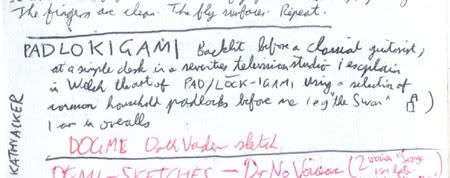 The fingers are clean. The fly surfaces. Repeat.
PADLOKIGAMI Backlit before a classical guitarist,
at a simple desk in a seventies television studio i explain
in Welsh the art of PAD/LOCK-IGAMI using a selection of
common household padlocks before me (eg "the Swan"
I am in overalls
KATHY ACKER
DOGME Darth Vader sketch
DEMI-SKETCHES - Dr No Version (2